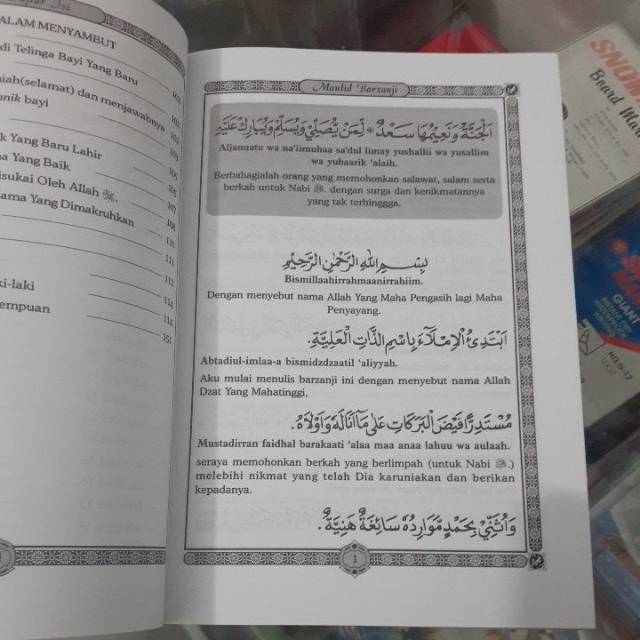 ALAM MENYAMBUT
di Telinga Bayi Yang Baru
iah(selamat) dan menjawabnya
nik bayi
k Yang Baru Lahir
ma Yang Baik
sukai Oleh Allah ﷻ.
ama Yang Dimakruhkan
ki-laki
empuan
107
110
111
112
114
Maulid Barzanji
اَلْجَنَّةُ وَنَعِيْمُهَا سَعْدٌ * لِمَنْ يُصَلِّيْ وَيُسَلِّمُ وَيُبَارِكْ عَلَيْهِ
Aljannatu wa na'iimuhaa sa'dul limay yushallii wa yusallim
wa yubaarik 'alaih.
Berbahagialah orang yang memohonkan salawat, salam serta
berkah untuk Nabi ﷺ. dengan surga dan kenikmatannya
yang tak terhinggga.
بِسْمِ اللهِ الرَّحْمٰنِ الرَّحِيْمِ
Bismillaahirrahmaanirrahiim.
Dengan menyebut nama Allah Yang Maha Pengasih lagi Maha
Penyayang.
اَبْتَدِئُ الْاِمْلَآءَ بِاسْمِ الذَّاتِ الْعَلِيَّةِ.
Abtadiul-imlaa-a bismidzdzaatil 'aliyyah.
Aku mulai menulis barzanji ini dengan menyebut nama Allah
Dzat Yang Mahatinggi,
مُسْتَدِرًّا فَيْضَ الْبَرَكَاتِ عَلٰى مَآ اَنَالَهُ وَاَوْلَاهُ.
Mustadirran faidhal barakaati 'alaa maa anaa lahuu wa aulaah.
seraya memohonkan berkah yang berlimpah (untuk Nabi ﷺ.)
melebihi nikmat yang telah Dia karuniakan dan berikan
kepadanya.
وَاُثَنِّيْ بِحَمْدٍ مَوَارِدُهُ سَآئِغَةٌ هَنِيَّةٌ.
1
SNOW
Board Ma
GIANT